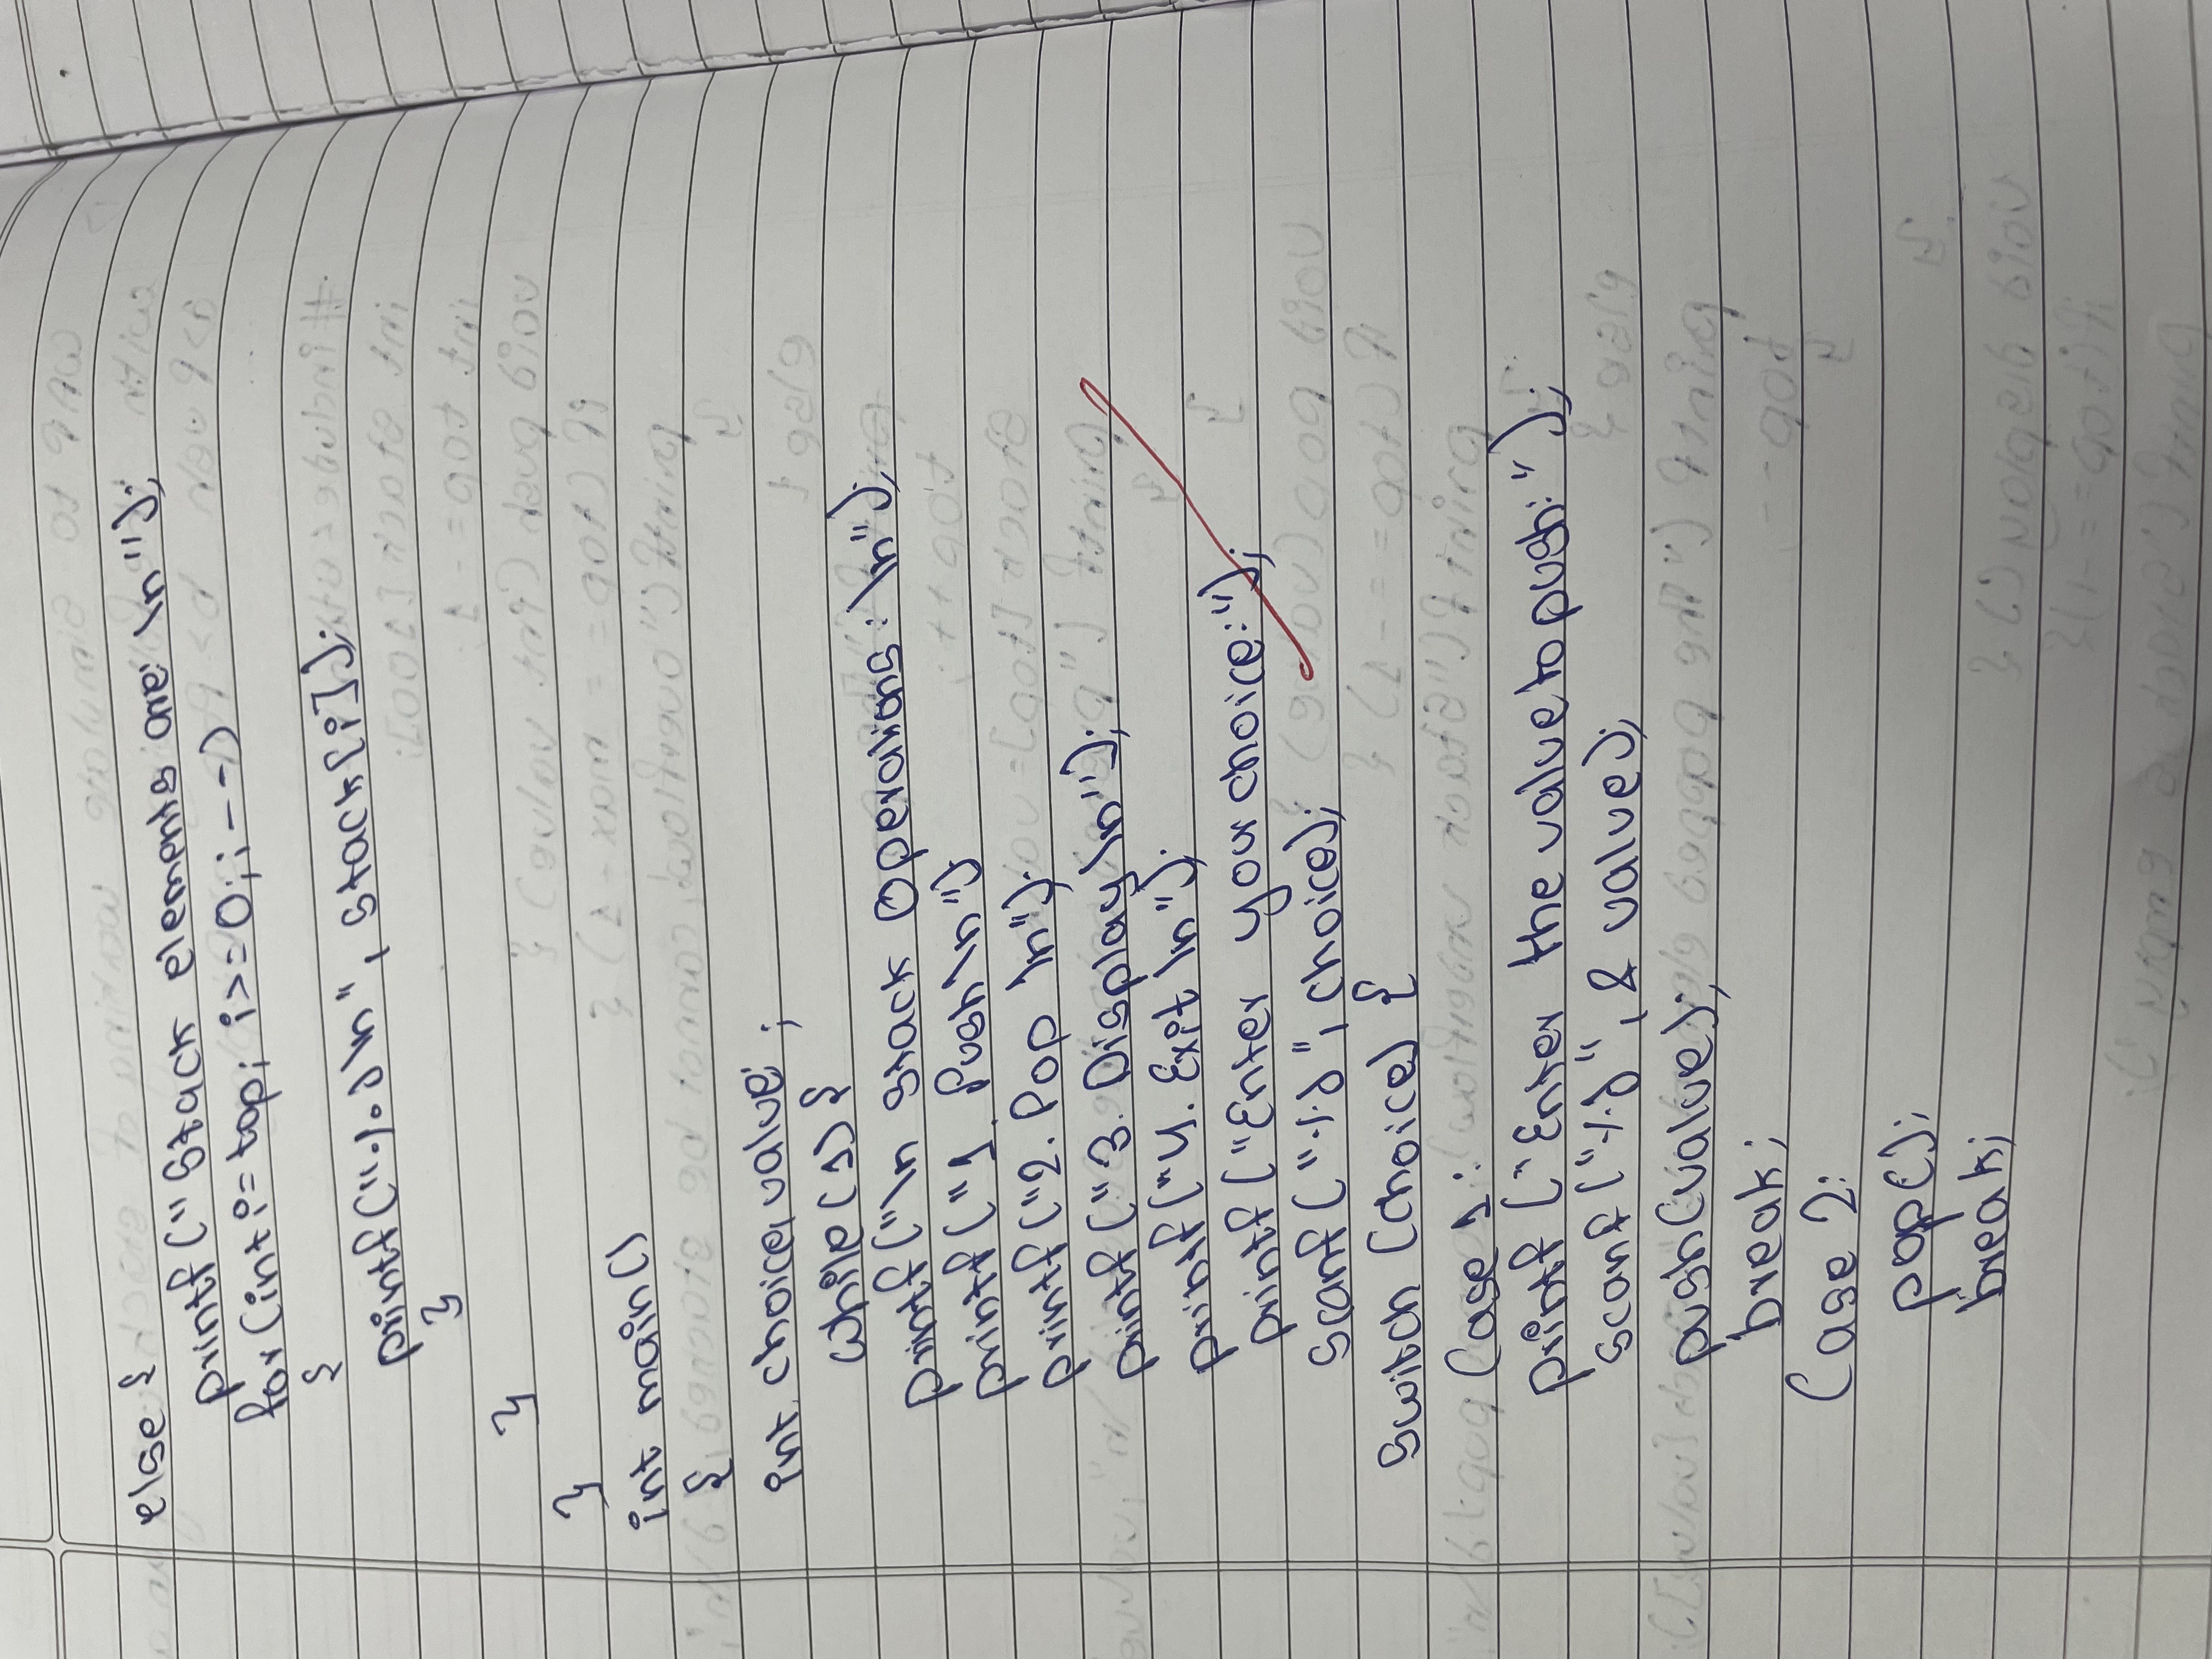 else {
printf ("Stack elements are: \n");
for (int i = top; i >= 0; i--)
{
printf("%d\n", stack[i]);
}
}
}
int main()
{
int choice, value;
while (1) {
printf("\n Stack Operations: \n");
printf("1. Push \n");
printf("2. Pop \n");
printf("3. Display \n");
printf("4. Exit \n");
printf("Enter your choice:");
scanf("%d", choice);
Switch (choice) {
Case 1:
printf ("Enter the value to push: ");
scanf("%d", & value);
push(value);
break;
Case 2:
pop();
break;